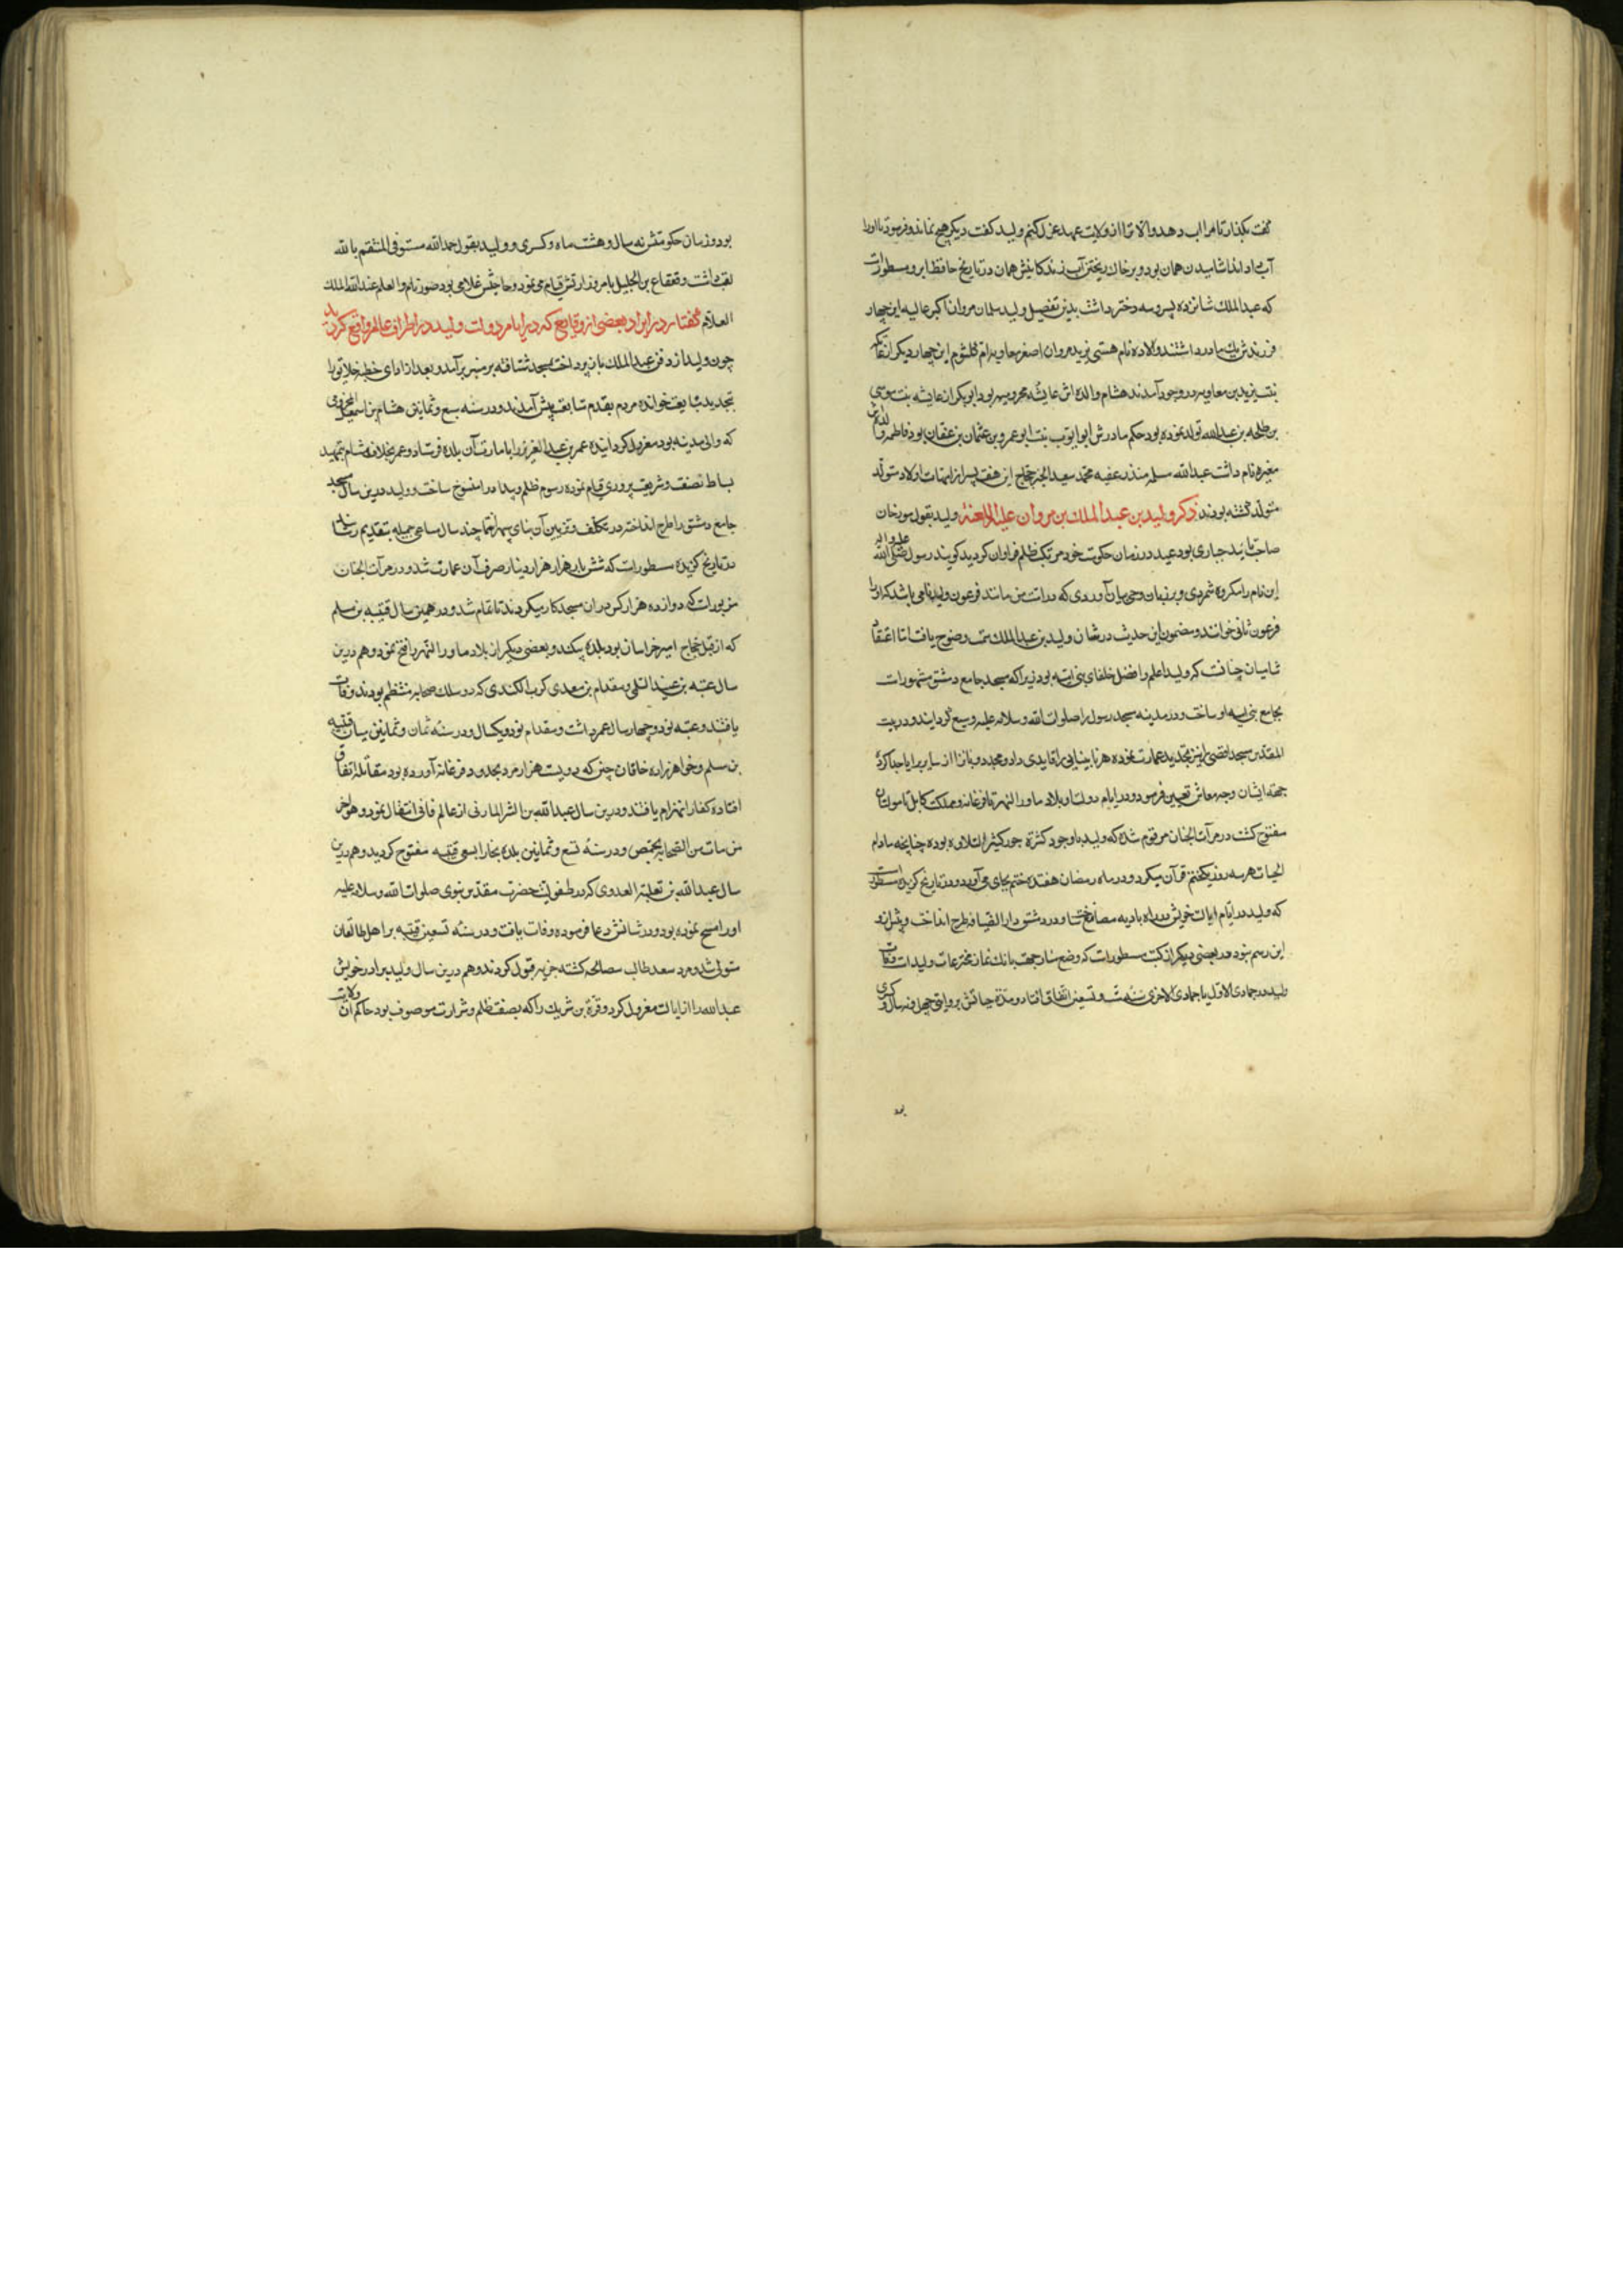 گفت بگذار تا مرا اب دهد والا ترا از ولایت عهد عزل کنم ولید گفت دیگر هیچ نماند و فرمود تا او را
آب دادند اشامیدن همان بود و بر خاک ریختن آب زندکانیش همان در تاریخ حافظ ابرو مسطورات
که عبدالملک شانزده پسر و سه دختر داشت بدین تفصیل ولید سلمان مروان اکبر عالیه این چهار
فرزند شریک مادر داشتند و لاده نام هستی یزید مروان اصغر معاویه ام کلثوم این چهار دیکر از عاتکه
بنت یزید بن معاویه در وجود آمدند هشام والده اش عایشه مخزومیه بود ابوبکر از عایشه بنت موسی
بن طلحه بن عبدالله تولد نموده بود حکم مادرش ام ایوب بنت ابو عمرو بن عثمان بن عفان بود فاطمه والده اش
مغیره نام داشت عبدالله سلم منذر عنبه محمد سعیدالخیر حجاج این هفت پسر از امهات اولاد متولد
متولد گشته بودند ذکر ولید بن عبدالملک بن مروان علیه اللعنة ولید بقول مورخان
صاحب تایید جباری بود عنید در زمان حکومت خود مرتکب ظلم فراوان کردید کویند رسول صلی الله علیه واله
این نام را مکروه شمردی و بر زبان وحی بیان آوردی که در امت من مانند فرعون ولید نامی باشد که او را
فرعون ثانی خوانند و مضمون این حدیث در شان ولید بن عبدالملک سمت وضوح یافت اما اعتقاد
شامیان چنانست که ولید اعلم و افضل خلفای بنی امیه بود زیرا که مسجد جامع دمشق مشهورات
بجامع بنی امیه او ساخت و در مدینه مسجد رسول را صلوات الله و سلامه علیه وسیع گردانید و در بیت
المقدس مسجد اقصی را نیز تجدید عمارت نموده هر نابینایی را قایدی داد و مجذومانرا از سایر برایا جدا کرده
جهة ایشان وجه معاش تعیین فرمود و در ایام دولت او بلاد ماورا النهر تا فرغانه و مملکت کابل تا مولتان
مفتوح گشت در مرآت الجنان مرقوم شده که ولید با وجود کثرة جور کثیر التلاوه بوده چنانچه مادام
الحیات هر سه روز یکختم قرآن میکرد و در ماه رمضان هفده ختم بجای می آورد و در تاریخ گزیده مسطورات
که ولید در ایام ایالت خویش در راه بادیه مصانع ساخت و در دمشق دار الضیافه طرح انداخت و پیش از و
این رسم نبود و در بعضی دیکر از کتب مسطورات که وضع منار جهت بانک نماز مخترعات ولیدات وفات
ولید در جمادی الاول یا جمادی الاخری سنه ست و تسعین اتفاق افتاد و مدة حیاتش بروایتی چهل و نه سال و کسری
بود و زمان حکومتش نه سال و هشت ماه و کسری و ولید بقول حمدالله مستوفی المنتقم بالله
لقب داشت و قعقاع بن الجلیل بامر وزارتش قیام می نمود و حاجبش غلامی بود نام والعلم عند الله الملک
العلام گفتار در ایراد بعضی از وقایع که در ایام دولت ولید در اطراف عالم واقع کردید
چون ولید از دفن عبدالملک باز پرداخت بمسجد شتافته بر منبر برآمد و بعد از ادای خطبه خلایق را
بتجدید بیعت خوانده مردم بقدم متابعت پیش آمدند و در سنه سبع و ثمانین هشام بن اسمعیل المخزومی
که والی مدینه بود معزول کردانیده عمر بن عبدالعزیز را بامارت آن بلده فرستاد و عمر بخلاف هشام تمهید
بساط نصفت و شریعت پروری قیام نموده رسوم ظلم و بیداد را منسوخ ساخت و ولید درین سال مسجد
جامع دمشق را طرح انداخته در تکلف و تزیین آن بنای سپهر ارتفاع چند سال مساعی جمیله بتقدیم رسانید
در تاریخ گزیده مسطورات که شش بار هزار هزار دینار صرف آن عمارت شد و در مرآت الجنان
مزبورات که دوازده هزار کس در ان مسجد کار میکردند تا تمام شد و در همین سال قتیبه بن مسلم
که از قبل حجاج امیر خراسان بود بلده بیکند و بعضی دیگر از بلاد ماورا النهر را فتح نمود و هم درین
سال عتبه بن عبد السلمی و مقدام بن معدی کرب الکندی که در سلک صحابه منتظم بودند وفات
یافتند و عتبه نود و چهار سال عمر داشت و مقدام نود و یکسال و در سنه ثمان و ثمانین میان قتیبه
بن مسلم و خواهرزاده خاقان چین که دویست هزار مرد بحدود فرغانه آورده بود مقاتله اتفاق
افتاده کفار انهزام یافتند و درین سال عبدالله بن البشر المازنی از عالم فانی انتقال نمود و هو اخر
من مات من الصحابه بحمص و در سنه تسع و ثمانین بلده بخارا بسعی قتیبه مفتوح کردید و هم درین
سال عبدالله بن ثعلبة العدوی که در طفولیت حضرت مقدس نبوی صلوات الله و سلامه علیه
او را مسح نموده بود و در شانش دعا فرموده وفات یافت و در سنه تسعین قتیبه بر اهل طالقان
مستولی شد و مرد سغد طالب مصالحه گشته جزیه قبول کردند و هم درین سال ولید برادر خویش
عبدالله را از ایالت مصر معزول کرد و قرة بن شریک را که بصفت ظلم و شرارت موصوف بود حاکم آن ولایت